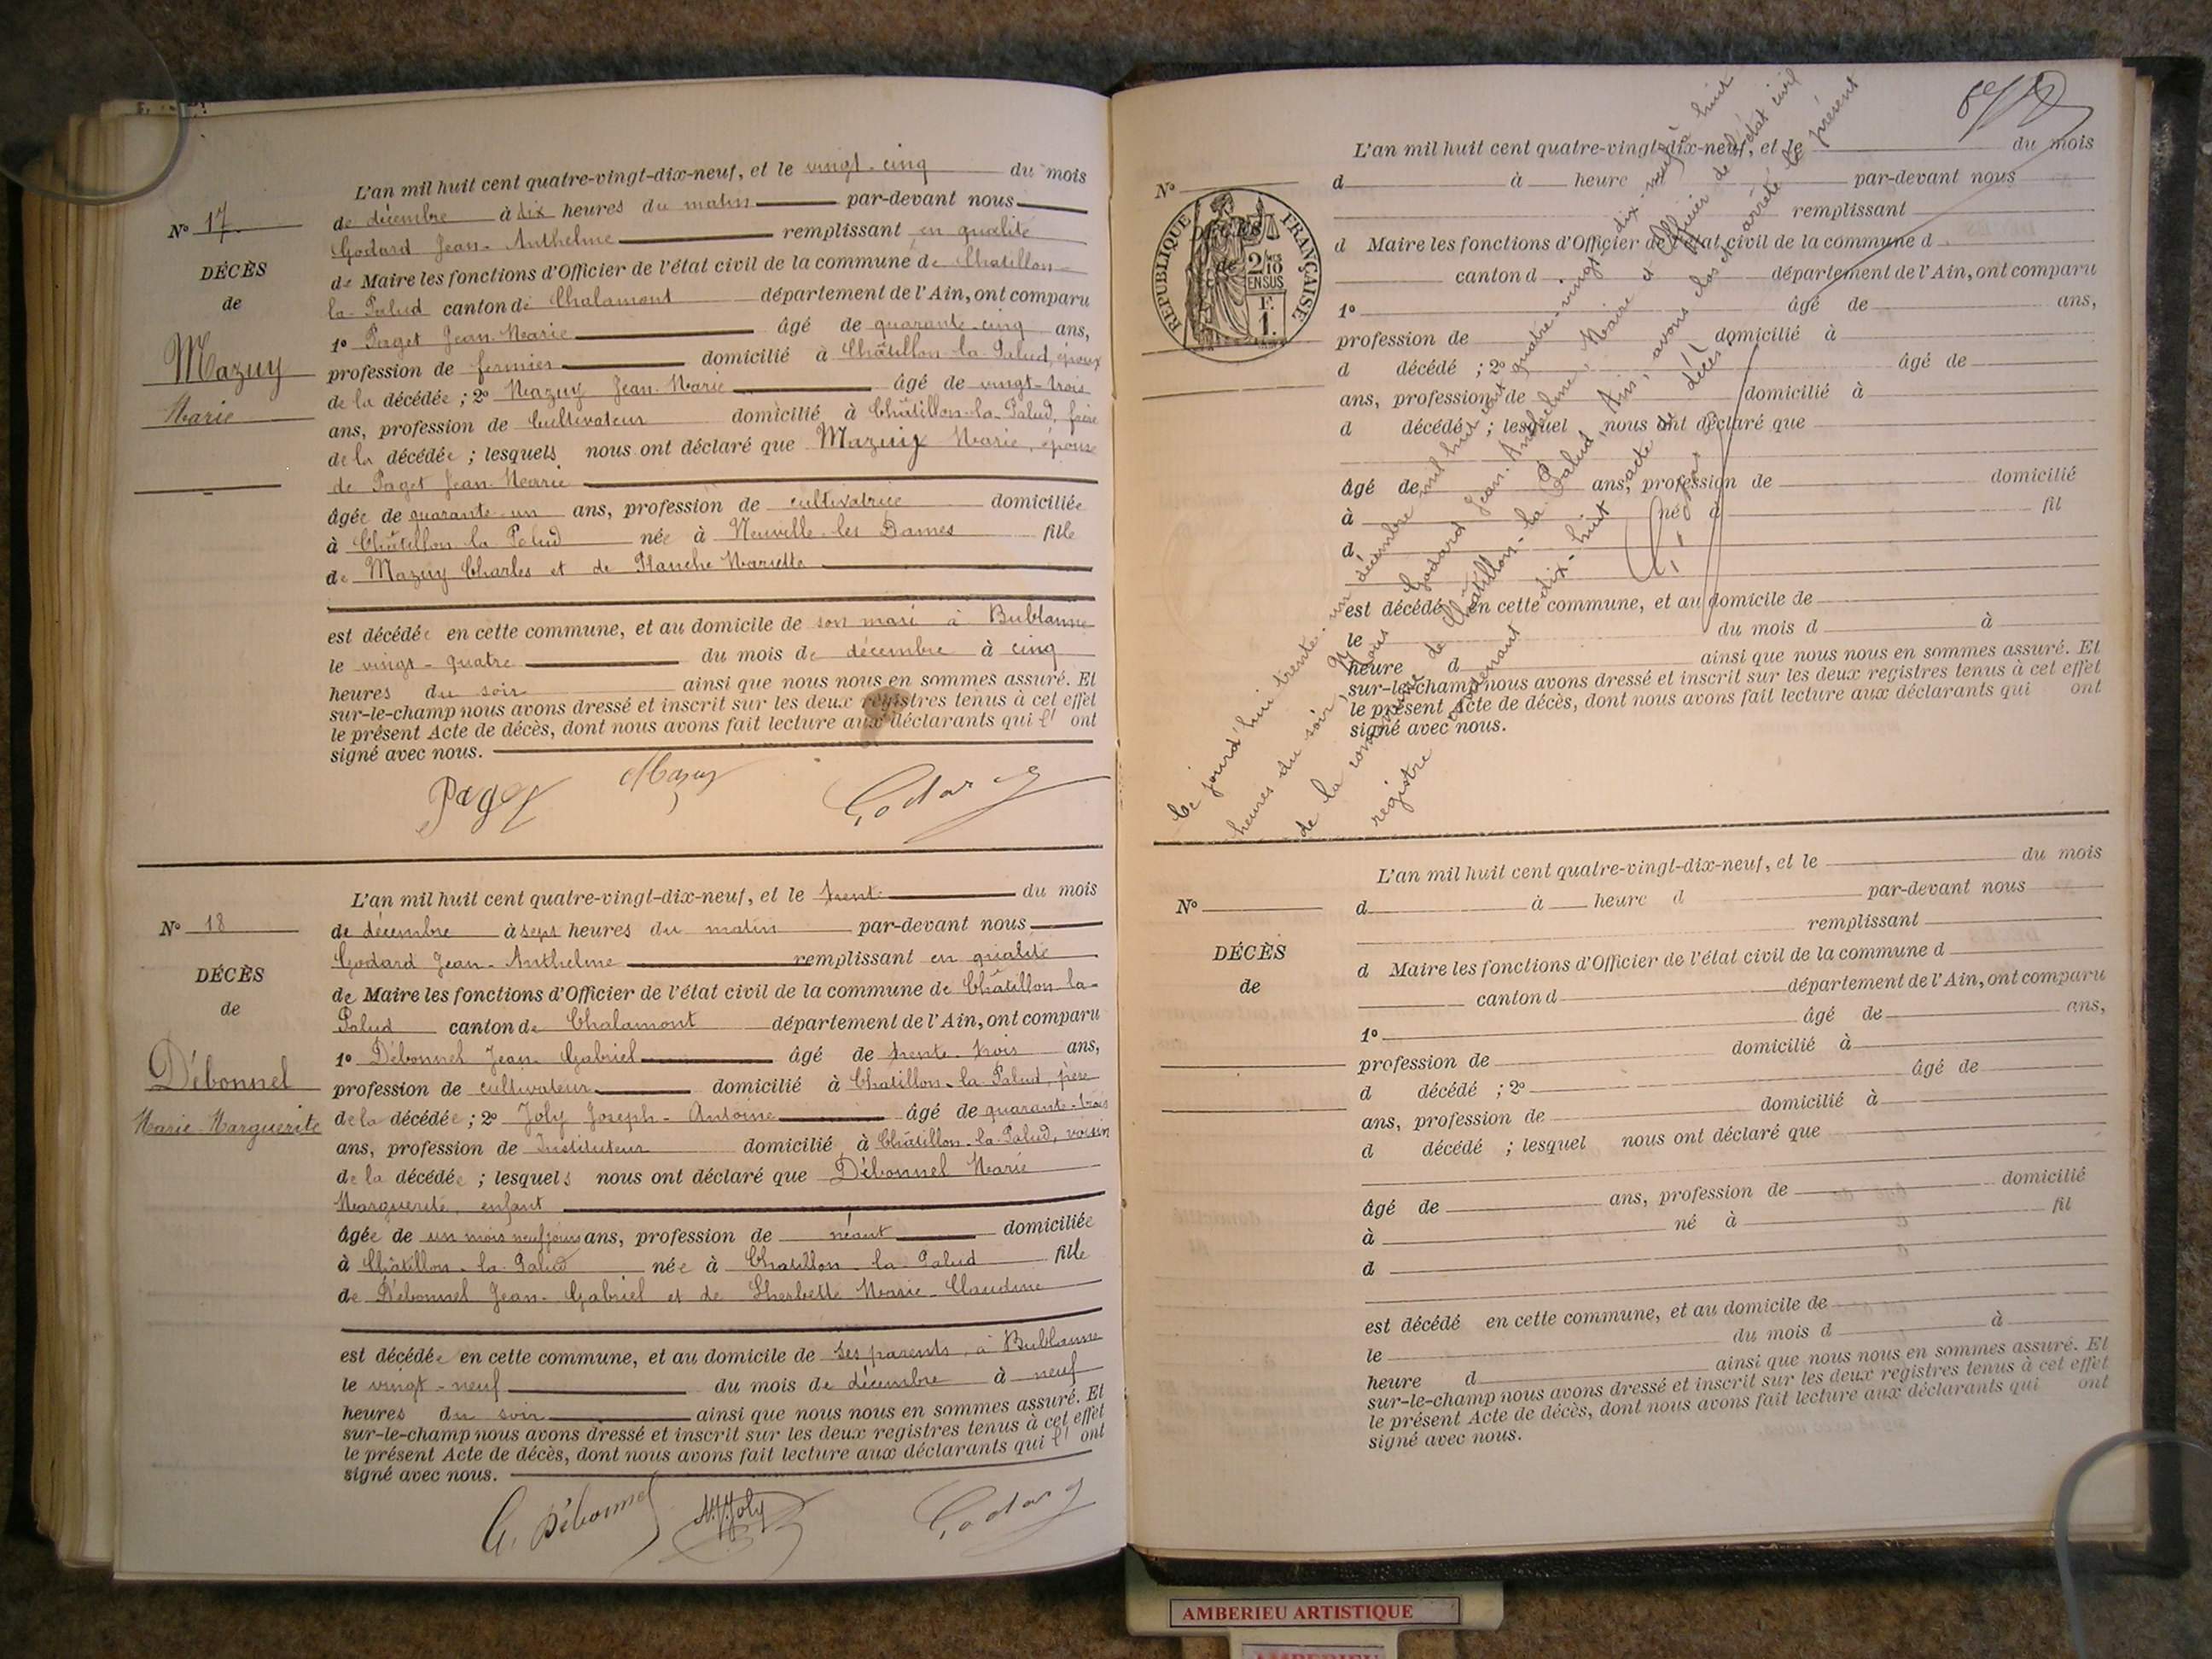 L'an mil huit cent quatre-vingt-dix-neuf, et le vingt-cinq du mois
N° 17 de décembre à dix heures du matin par-devant nous
Godard Jean-Anthelme remplissant en qualité
DÉCÈS de Maire les fonctions d'Officier de l'état civil de la commune de Chatillon-
de la-Palud canton de Chalamont département de l'Ain, ont comparu
1° Paget Jean-Marie âgé de quarante-cinq ans,
Mazuy profession de fermier domicilié à Châtillon-la-Palud, époux
de la décédée ; 2° Mazuy Jean-Marie âgé de vingt-trois
Marie ans, profession de Cultivateur domicilié à Châtillon-la-Palud, frère
de la décédée ; lesquels nous ont déclaré que Mazuy Marie, épouse
de Paget Jean-Marie
âgée de quarante-un ans, profession de cultivatrice domiciliée
à Châtillon-la-Palud née à Neuville-les-Dames fille
de Mazuy Charles et de Planche Mariette
est décédée en cette commune, et au domicile de son mari à Bublanne
le vingt-quatre du mois de décembre à cinq
heures du soir ainsi que nous nous en sommes assuré. Et
sur-le-champ nous avons dressé et inscrit sur les deux registres tenus à cet effet
le présent Acte de décès, dont nous avons fait lecture aux déclarants qui l' ont
signé avec nous.
Paget Mazuy Godard
L'an mil huit cent quatre-vingt-dix-neuf, et le trente du mois
N° 18 de décembre à sept heures du matin par-devant nous
Godard Jean-Anthelme remplissant en qualité
DÉCÈS de Maire les fonctions d'Officier de l'état civil de la commune de Châtillon-la-
de Palud canton de Chalamont département de l'Ain, ont comparu
1° Débonnel Jean-Gabriel âgé de trente-trois ans,
Débonnel profession de cultivateur domicilié à Chatillon-la-Palud, père
Marie-Marguerite de la décédée ; 2° Joly Joseph-Antoine âgé de quarante-trois
ans, profession de Instituteur domicilié à Châtillon-la-Palud, voisin
de la décédée ; lesquels nous ont déclaré que Débonnel Marie
Marguerite, enfant
âgée de un mois neuf jours ans, profession de néant domiciliée
à Châtillon-la-Palud née à Chatillon-la-Palud fille
de Débonnel Jean-Gabriel et de Lherbette Marie-Claudine
est décédée en cette commune, et au domicile de ses parents, à Bublanne
le vingt-neuf du mois de décembre à neuf
heures du soir ainsi que nous nous en sommes assuré. Et
sur-le-champ nous avons dressé et inscrit sur les deux registres tenus à cet effet
le présent Acte de décès, dont nous avons fait lecture aux déclarants qui l' ont
signé avec nous.
G. Débonnel Joly Godard
L'an mil huit cent quatre-vingt-dix-neuf, et le du mois
N° d à heure par-devant nous
remplissant
d Maire les fonctions d'Officier de l'état civil de la commune d
canton d département de l'Ain, ont comparu
RÉPUBLIQUE FRANÇAISE
2/10 EN SUS
F.
1.
DÉCÈS
de
1° âgé de ans,
profession de domicilié à
d décédé ; 2° âgé de
ans, profession de domicilié à
d décédé ; lesquel nous ont déclaré que
âgé de ans, profession de domicilié
à né à fil
d
est décédé en cette commune, et au domicile de
le du mois d à
heure d ainsi que nous nous en sommes assuré. Et
sur-le-champ nous avons dressé et inscrit sur les deux registres tenus à cet effet
le présent Acte de décès, dont nous avons fait lecture aux déclarants qui ont
signé avec nous.
Ce jourd'hui trente-un décembre mil huit cent quatre-vingt-dix-neuf à huit
heures du soir, Nous Godard Jean-Anthelme, Maire et Officier de l'état civil
de la commune de Châtillon-la-Palud, Ain, avons clos et arrêté le présent
registre contenant dix-huit actes de décès.
L'an mil huit cent quatre-vingt-dix-neuf, et le du mois
N° d à heure d par-devant nous
remplissant
DÉCÈS d Maire les fonctions d'Officier de l'état civil de la commune d
de canton d département de l'Ain, ont comparu
1° âgé de ans,
profession de domicilié à
d décédé ; 2° âgé de
ans, profession de domicilié à
d décédé ; lesquel nous ont déclaré que
âgé de ans, profession de domicilié
à né à fil
d
est décédé en cette commune, et au domicile de
le du mois d à
heure d ainsi que nous nous en sommes assuré. Et
sur-le-champ nous avons dressé et inscrit sur les deux registres tenus à cet effet
le présent Acte de décès, dont nous avons fait lecture aux déclarants qui ont
signé avec nous.
AMBERIEU ARTISTIQUE
AMBERIEU